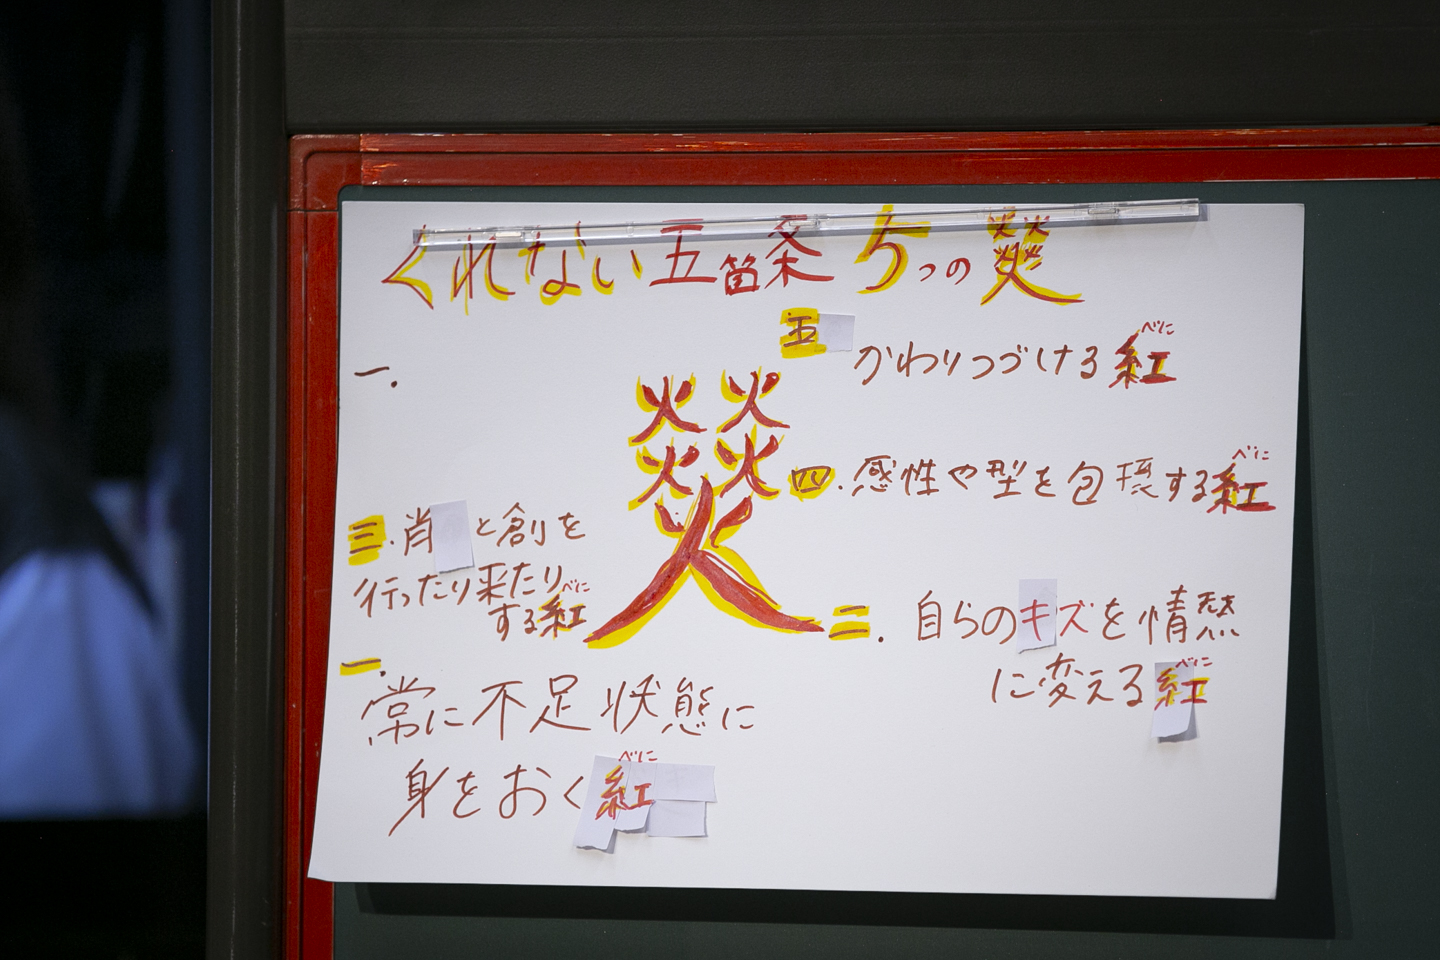 くれない五箇条 5つの
五 かわりつづける紅
べに
一.
四.感性や型を包環する紅
べに
三.肖と創を
行ったり来たり
する紅
べに
二.自らのキズを情熱
に変える紅
べに
一.
常に不足状態に
身をおく紅
べに